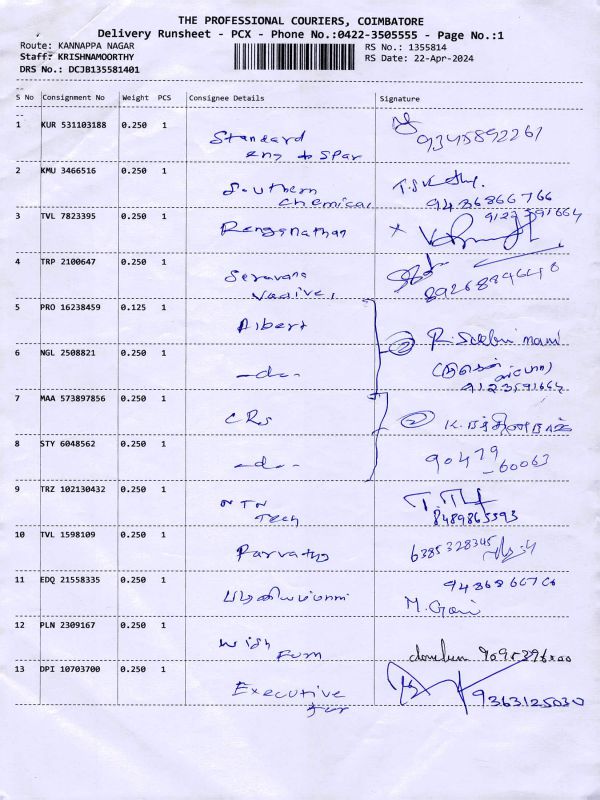 THE PROFESSIONAL COURIERS, COIMBATORE
Delivery Runsheet - PCX - Phone No.:0422-3505555 - Page No.:1
Route: KANNAPPA NAGAR
RS No.: 1355814
Staff: KRISHNAMOORTHY
RS Date: 22-Apr-2024
DRS No.: DCJB135581401
S No Consignment No Weight PCS Consignee Details Signature
1 KUR 531103188 0.250 1 Standard
9345892261
2 KMU 3466516 0.250 1 Southern
Chemical
9486866766
3 TVL 7823395 0.250 1 Renganathan
9123591664
4 TRP 2100647 0.250 1 Seravana
Vadivel
5 PRO 16238459 0.125 1 Albert
6 NGL 2508821 0.250 1 -do-
9123591664
7 MAA 573897856 0.250 1 CRS
8 STY 6048562 0.250 1 -do-
90479
-60063
9 TRZ 102130432 0.250 1 NTN
Tech
8489865593
10 TVL 1598109 0.250 1 Parvatha 6385328345
11 EDQ 21558335 0.250 1
M. Gowri
12 PLN 2309167 0.250 1 Wish
Furn
13 DPI 10703700 0.250 1 Executive
9363125030